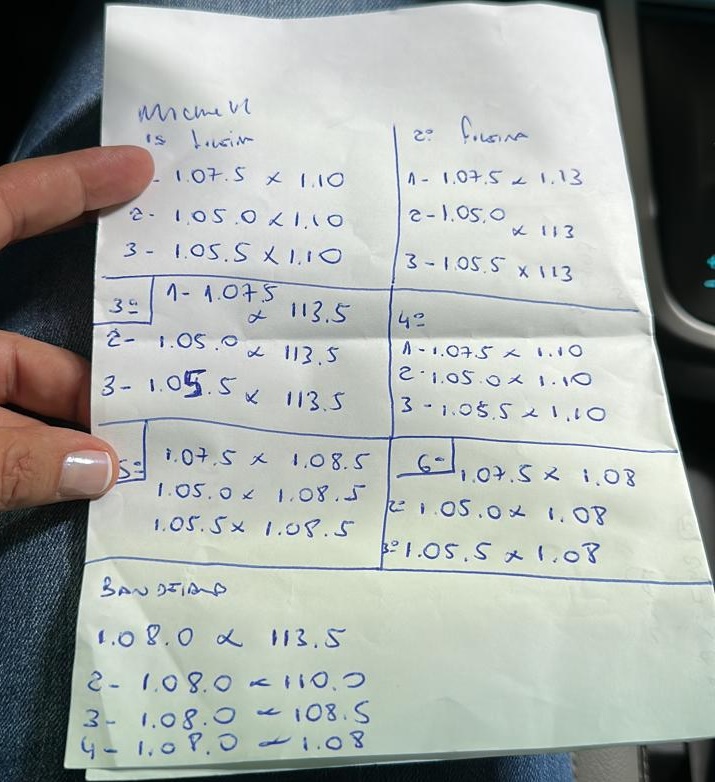 1- 1.07.5 x 1.10
2- 1.05.0 x 1.10
3- 1.05.5 x 1.10
2º
1- 1.07.5 x 1.13
2- 1.05.0
x 113
3- 1.05.5 x 113
3º
1- 1.075
x 113.5
2- 1.05.0 x 113.5
3- 1.05.5 x 113.5
4º
1- 1.07.5 x 1.10
2- 1.05.0 x 1.10
3- 1.05.5 x 1.10
5º
1.07.5 x 1.08.5
1.05.0 x 1.08.5
1.05.5 x 1.08.5
6º
1.07.5 x 1.08
2º 1.05.0 x 1.08
3º 1.05.5 x 1.08
1.08.0 x 113.5
2- 1.08.0 x 110.0
3- 1.08.0 x 108.5
4- 1.08.0 x 1.08